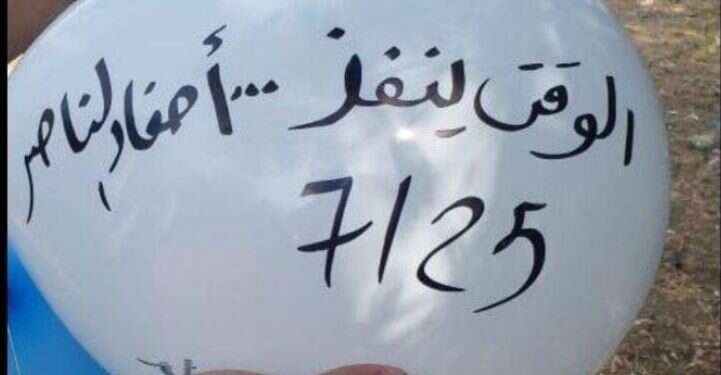 الوقت ينفذ ... أحفاد الناصر
7/25